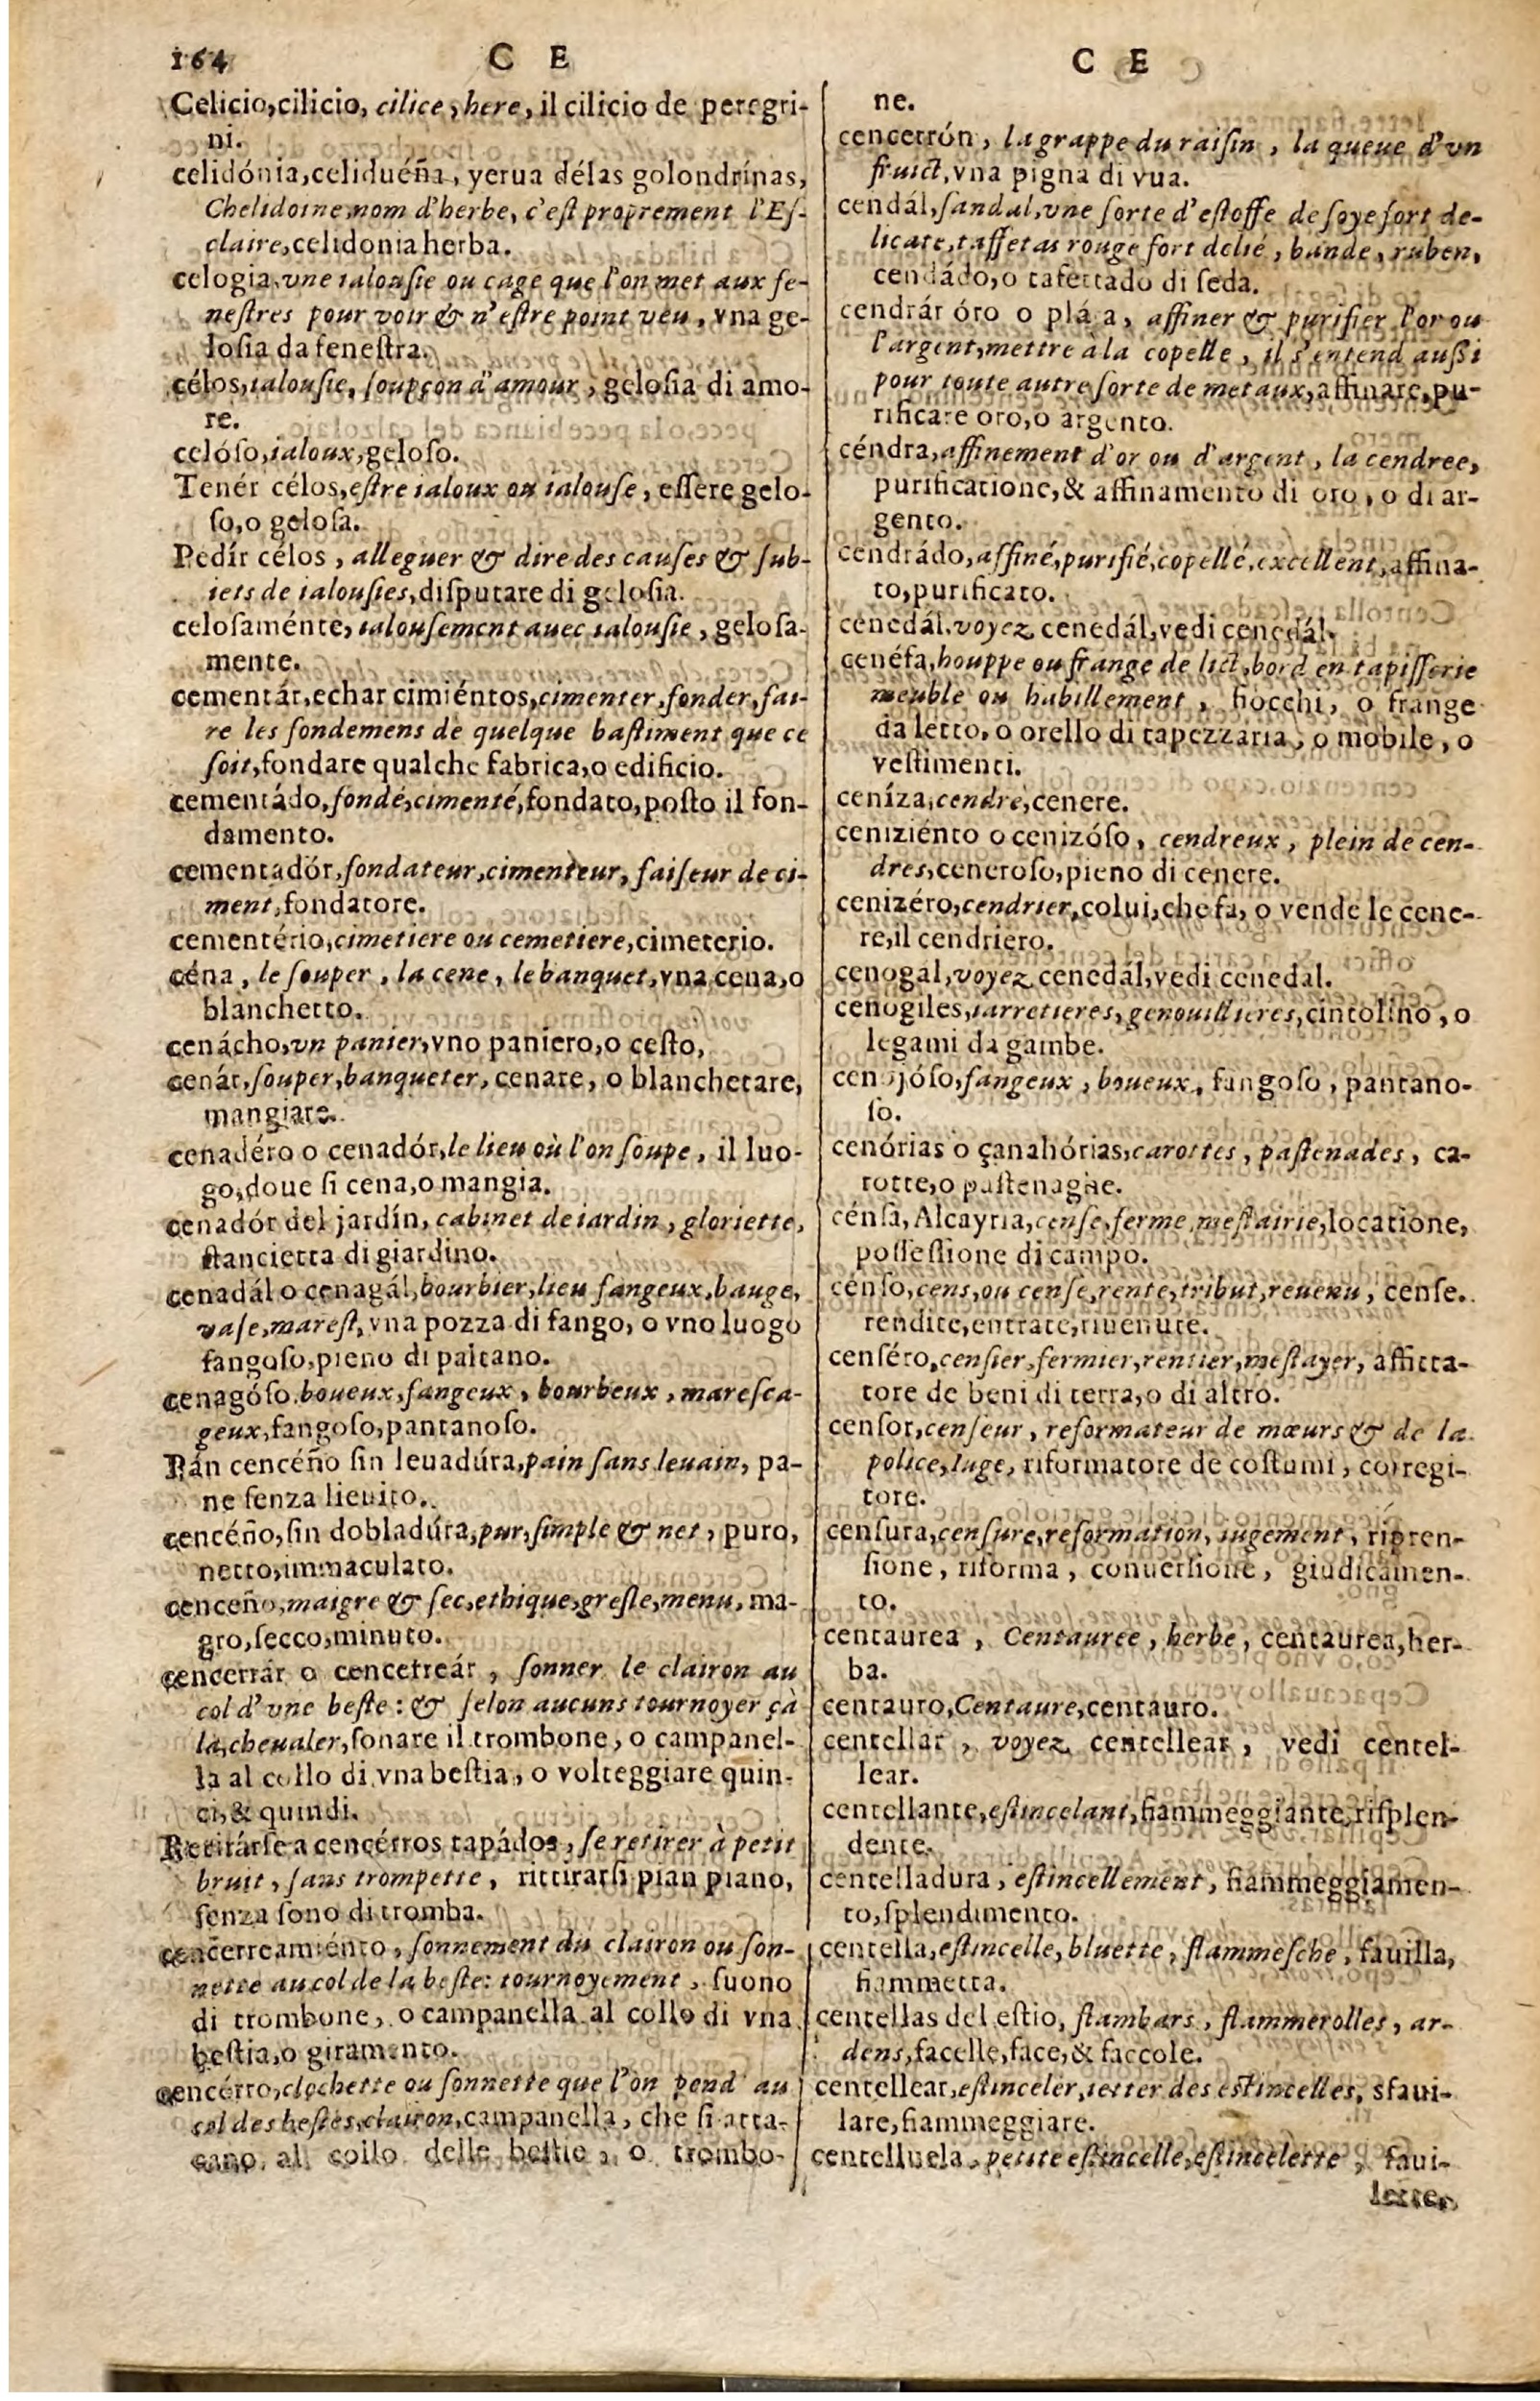 164 C E
Celicio,cilicio, cilice, here, il cilicio de peregri-
ni.
celidónia,celiduéña, yerua délas golondrínas,
Chelidoine,nom d'herbe, c'eſt proprement l'Eſ-
claire,celidonia herba.
celogia,vne ialouſie ou cage que l'on met aux fe-
neſtres pour voir & n'eſtre point veu, vna ge-
loſia da feneſtra.
célos,ialouſie, ſoupçon d'amour, geloſia di amo-
re.
celóſo,ialoux,geloſo.
Tenér célos,eſtre ialoux ou ialouſe, eſſere gelo-
ſo,o geloſa.
Pedír célos, alleguer & dire des cauſes & ſub-
iets de ialouſies,diſputare di geloſia.
celoſaménte,ialouſement auec ialouſie, geloſa-
mente.
cementár,echar cimiéntos,cimenter,fonder,fai-
re les fondemens de quelque baſtiment que ce
ſoit,fondare qualche fabrica,o edificio.
cementádo,fondé,cimenté,fondato,poſto il fon-
damento.
cementadór,fondateur,cimenteur, faiſeur de ci-
ment,fondatore.
cementério,cimetiere ou cemetiere,cimeterio.
céna, le ſouper, la cene, le banquet,vna cena,o
blanchetto.
cenácho,vn panier,vno paniero,o ceſto,
cenár,ſouper,banqueter, cenare, o blanchetare,
mangiare.
cenadéro o cenadór,le lieu où l'on ſoupe, il luo-
go,doue ſi cena,o mangia.
cenadór del jardín, cabinet de iardin, gloriette,
ſtancietta di giardino.
cenadál o cenagál,bourbier,lieu fangeux,bauge,
vaſe,mareſt, vna pozza di fango, o vno luogo
fangoſo,pieno di paltano.
cenagóſo,boueux,fangeux, bourbeux, mareſca-
geux,fangoſo,pantanoſo.
Pán cencéño ſin leuadúra,pain ſans leuain, pa-
ne ſenza lieuito.
cencéño,ſin dobladúra,pur,ſimple & net, puro,
netto,immaculato.
cenceño,maigre & ſec,ethique,greſle,menu, ma-
gro,ſecco,minuto.
cencerrár o cencerreár, ſonner le clairon au
col d'vne beſte: & ſelon aucuns tournoyer çà
là,cheualer,ſonare il trombone, o campanel-
la al collo di vna beſtia, o volteggiare quin-
ci,& quindi.
Retirárſe a cencérros tapádos, ſe retirer à petit
bruit, ſans trompette, rittirarſi pian piano,
ſenza ſono di tromba.
cencerreamiénto, ſonnement du clairon ou ſon-
nette au col de la beſte: tournoyement, ſuono
di trombone, o campanella al collo di vna
beſtia,o giramento.
cencérro,clochette ou ſonnette que l'on pend au
col des beſtes,clairon,campanella, che ſi atta-
cano al collo delle beſtie, o trombo-
C E
ne.
cencerrón, la grappe du raiſin, la queue d'vn
fruict,vna pigna di vua.
cendál,ſandal,vne ſorte d'eſtoffe de ſoye fort de-
licate,taffetas rouge fort delié, bande, ruben,
cendádo,o tafettado di ſeda.
cendrár óro o pláta, affiner & purifier l'or ou
l'argent,mettre à la copelle, il s'entend auſsi
pour toute autre ſorte de metaux,affinare,pu-
rificare oro,o argento.
céndra,affinement d'or ou d'argent, la cendree,
purificatione,& affinamento di oro, o di ar-
gento.
cendrádo,affiné,purifié,copellé,excellent,affina-
to,purificato.
cenedál,voyez cenedál,vedi cenedál.
cenéfa,houppe ou frange de lict,bord en tapiſſerie
meuble ou habillement, fiocchi, o frange
da letto, o orello di tapezzaria, o mobile, o
veſtimenti.
ceníza,cendre,cenere.
ceniziénto o cenizóſo, cendreux, plein de cen-
dres,ceneroſo,pieno di cenere.
cenizéro,cendrier,colui,che fa, o vende le cene-
re,il cendriero.
cenogál,voyez cenedál,vedi cenedal.
cenogiles,iarretieres,genouillieres,cintolino, o
legami da gambe.
cenojóſo,fangeux, boueux, fangoſo, pantano-
ſo.
cenórias o çanahórias,carottes, paſtenades, ca-
rotte,o paſtenaghe.
cénſa, Alcayria,cenſe,ferme,meſtairie,locatione,
poſſeſſione di campo.
cénſo,cens,ou cenſe,rente,tribut,reuenu, cenſe.
rendite,entrate,riuenute.
cenſéro,cenſier,fermier,rentier,meſtayer, affitta-
tore de beni di terra,o di altro.
cenſor,cenſeur, reformateur de mœurs & de la
police,Iuge, riformatore de coſtumi, corregi-
tore.
cenſura,cenſure,reformation, iugement, ripren-
ſione, riforma, conuerſione, giudicamen-
to.
centaurea, Centauree, herbe, centaurea,her-
ba.
centauro,Centaure,centauro.
centellar, voyez centellear, vedi centel-
lear.
centellante,eſtincelant,fiammeggiante,riſplen-
dente.
centelladura, eſtincellement, fiammeggiamen-
to,ſplendimento.
centella,eſtincelle,bluette, flammeſche, fauilla,
fiammetta.
centellas del eſtio, flambars, flammerolles, ar-
dens,facelle,face,& faccole.
centellear,eſtinceler,ietter des eſtincelles, sfaui-
lare,fiammeggiare.
centelluela, petite eſtincelle,eſtincelette, faui-
lette,